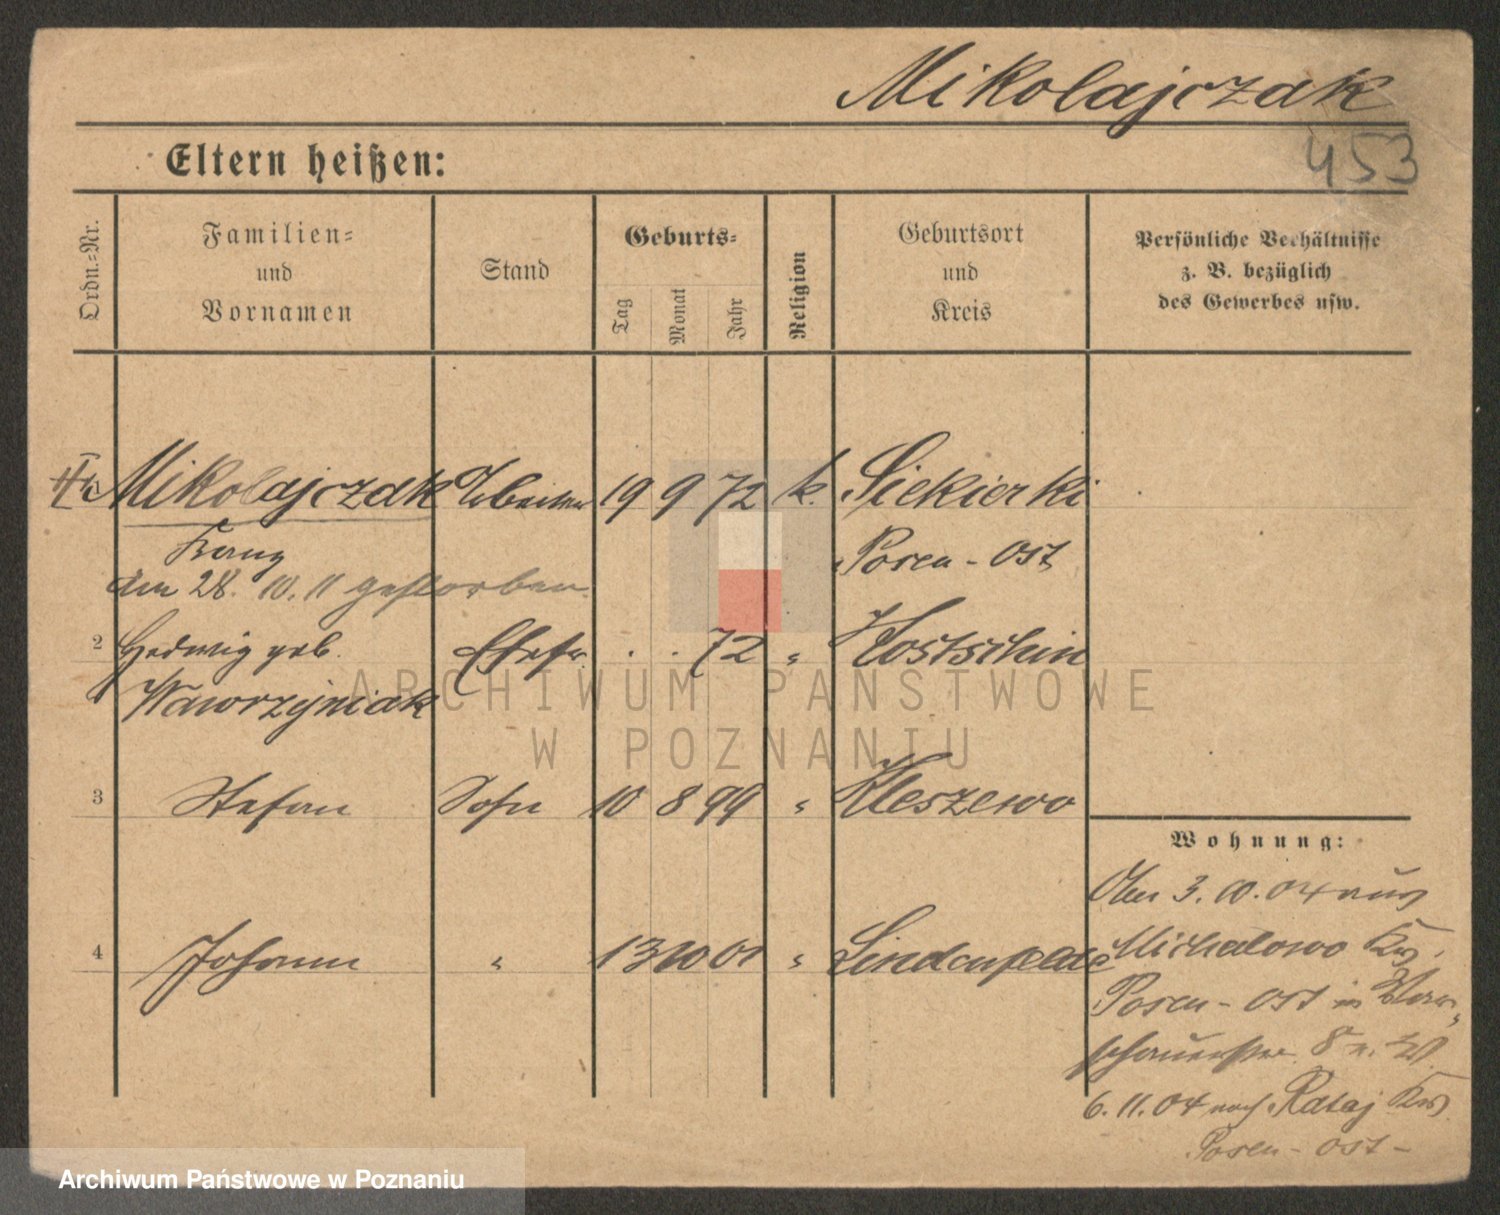 Mikolajczak
453
Eltern heißen:
Ordn.-Nr.
Familien-
und
Vornamen
Stand
Geburts-
Tag
Monat
Jahr
Religion
Geburtsort
und
Kreis
Persönliche Verhältnisse
z. B. bezüglich
des Gewerbes usw.
1 Mikolajczak Arbeiter 19 9 72 k. Siekierki
Franz Posen-Ost
am 28. 10. 11 gestorben.
2 Hedwig geb. Ehefr. . . 72 " Kostschin
Wawrzyniak
3 Stefan Sohn 10 8 99 " Kleszewo
4 Johann " 13 10 01 " Lindenfelde
Wohnung:
3. 10. 04 aus
Michalowo Krs.
Posen-Ost in War-
schauerstr. 8
6. 11. 04 nach Rataj Krs.
Posen-Ost-
ARCHIWUM PAŃSTWOWE
W POZNANIU
Archiwum Państwowe w Poznaniu